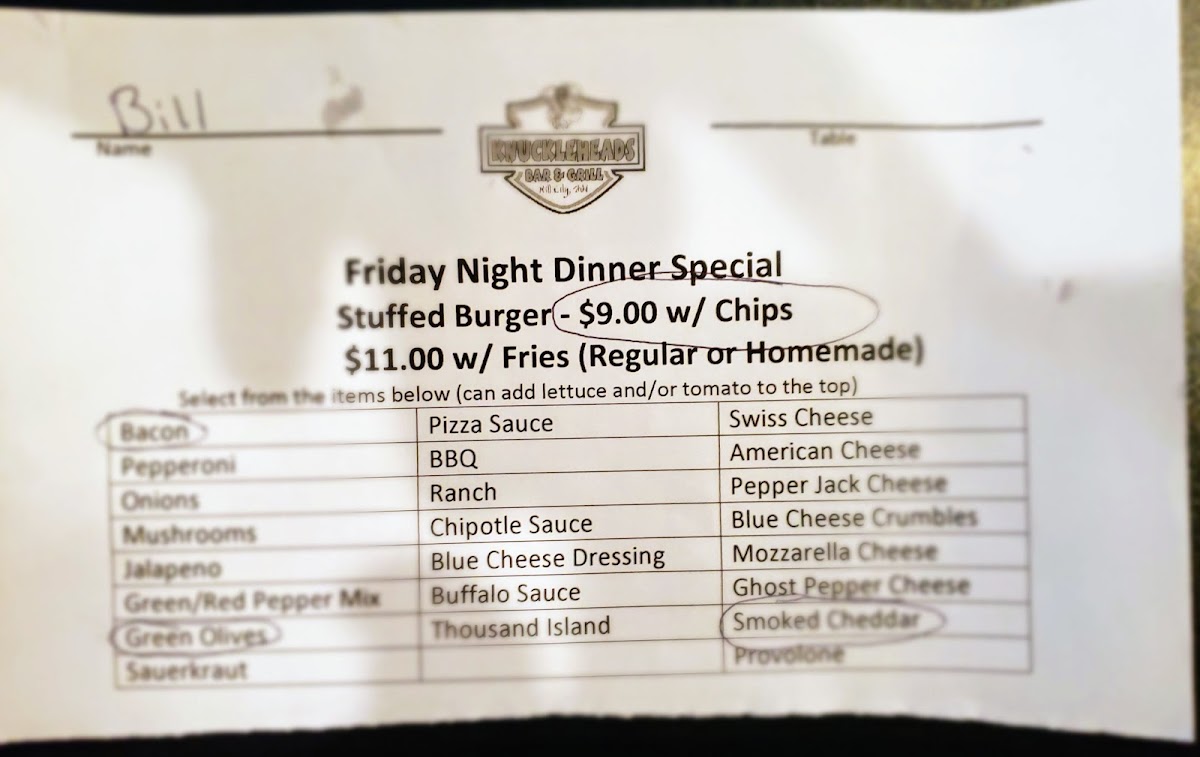 Bill
Name
Table
KNUCKLEHEADS
BAR & GRILL
Friday Night Dinner Special
Stuffed Burger - $9.00 w/ Chips
$11.00 w/ Fries (Regular or Homemade)
Select from the items below (can add lettuce and/or tomato to the top)
Bacon Pizza Sauce Swiss Cheese
Pepperoni BBQ American Cheese
Onions Ranch Pepper Jack Cheese
Mushrooms Chipotle Sauce Blue Cheese Crumbles
Jalapeno Blue Cheese Dressing Mozzarella Cheese
Green/Red Pepper Mix Buffalo Sauce Ghost Pepper Cheese
Green Olives Thousand Island Smoked Cheddar
Sauerkraut Provolone